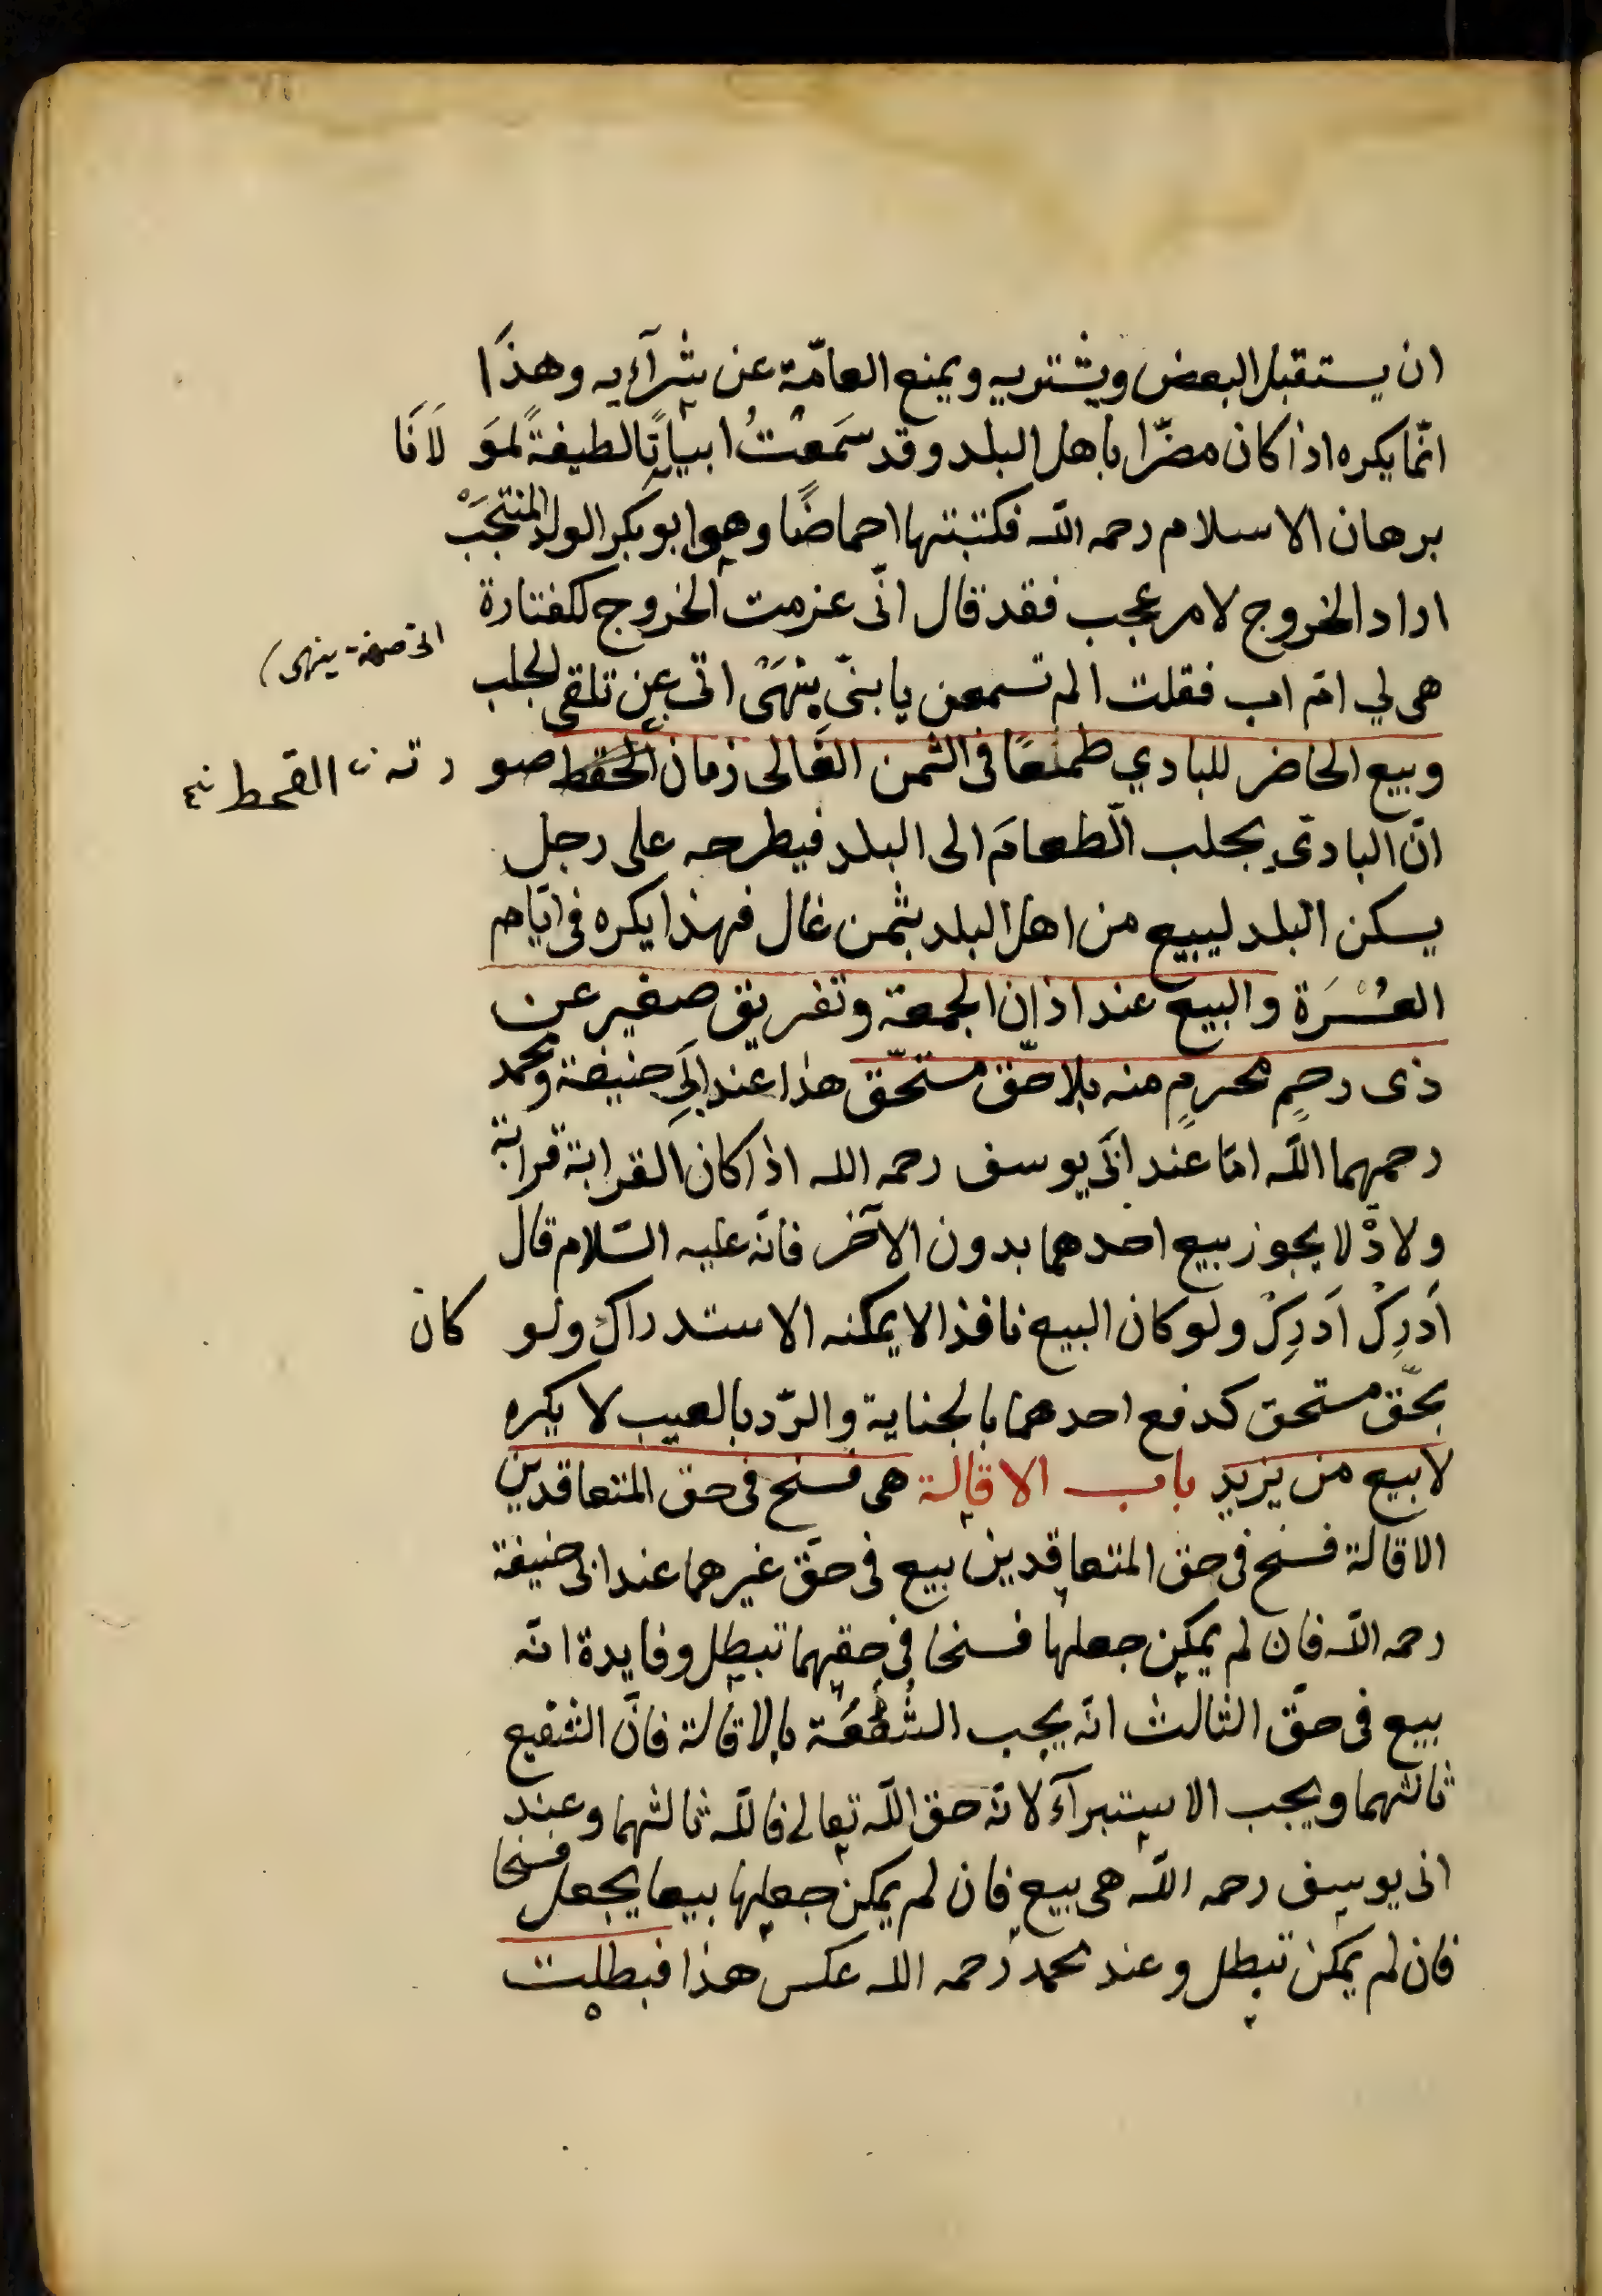 ان يستقبل البعض ويشتريه ويمنع العامّة عن شرآءيه وهذا
انّما يكره اذا كان مضرّا باهل البلد وقد سَمعْتُ ابياتًا لطيفةً لمَولَانَا
برهان الاسلام رحمه الله فكتبتها احماضًا وهو ابو بكر الولد المنتجَبْ
اراد الخروج لامر عجب فقد قال انّى عزمت الخروج لكفتارة
هى لي امّ اب فقلت الم تسمعن يا بنىّ ينْهَىْ اتى عن تلقى الجلب
وبيع الحاضر للبادي طمعًا فى الثمن الغالى زمان القحط صورته
انّ البادىَ يجلب الطعامَ الى البلد فيطرحه على رجل
يسكن البلد ليبيع من اهل البلد بثمن غال فهذا يكره فى ايّام
العُسْرَة والبيع عند اذان الجمعة وتفريق صغير عن
ذى رحمٍ محرمٍ منه بلا حقّ مستحّق هذا عند ابى حنيفة ومحمد
رحمهما الله امّا عند ابى يوسف رحمه الله اذا كان القرابة قرابة
ولادْ لا يجوز بيع احدهما بدون الآخر فانّه عليه السّلام قال
اَدرِكْ اَدرِكْ ولو كان البيع نافذا لا يمكنه الاستدراك ولو كان
بحّق مستحق كدفع احدهما بالجناية والرّد بالعيب لا يكره
لا بيع من يزيد باب الاقالة هى فسخ فى حق المتعاقدين
الاقالة فسخ فى حق المتعاقدين بيع فى حقّ غيرهما عند ابى حنيفة
رحمه الله فان لم يمكن جعلها فسخا فى حقهما تبطل وفايدة انّه
بيع فى حقّ الثالث انّه يجب الشُفْعَة بالاقالة فانَّ الشفيع
ثالثهما ويجب الاستبرآء لانّه حق الله تعالى فالله ثالثهما وعند
ابى يوسف رحمه الله هى بيع فان لم يمكن جعلها بيعا يجعل فسخا
فان لم يمكن تبطل وعند محمد رحمه الله عكس هذا فبطلت
القحط